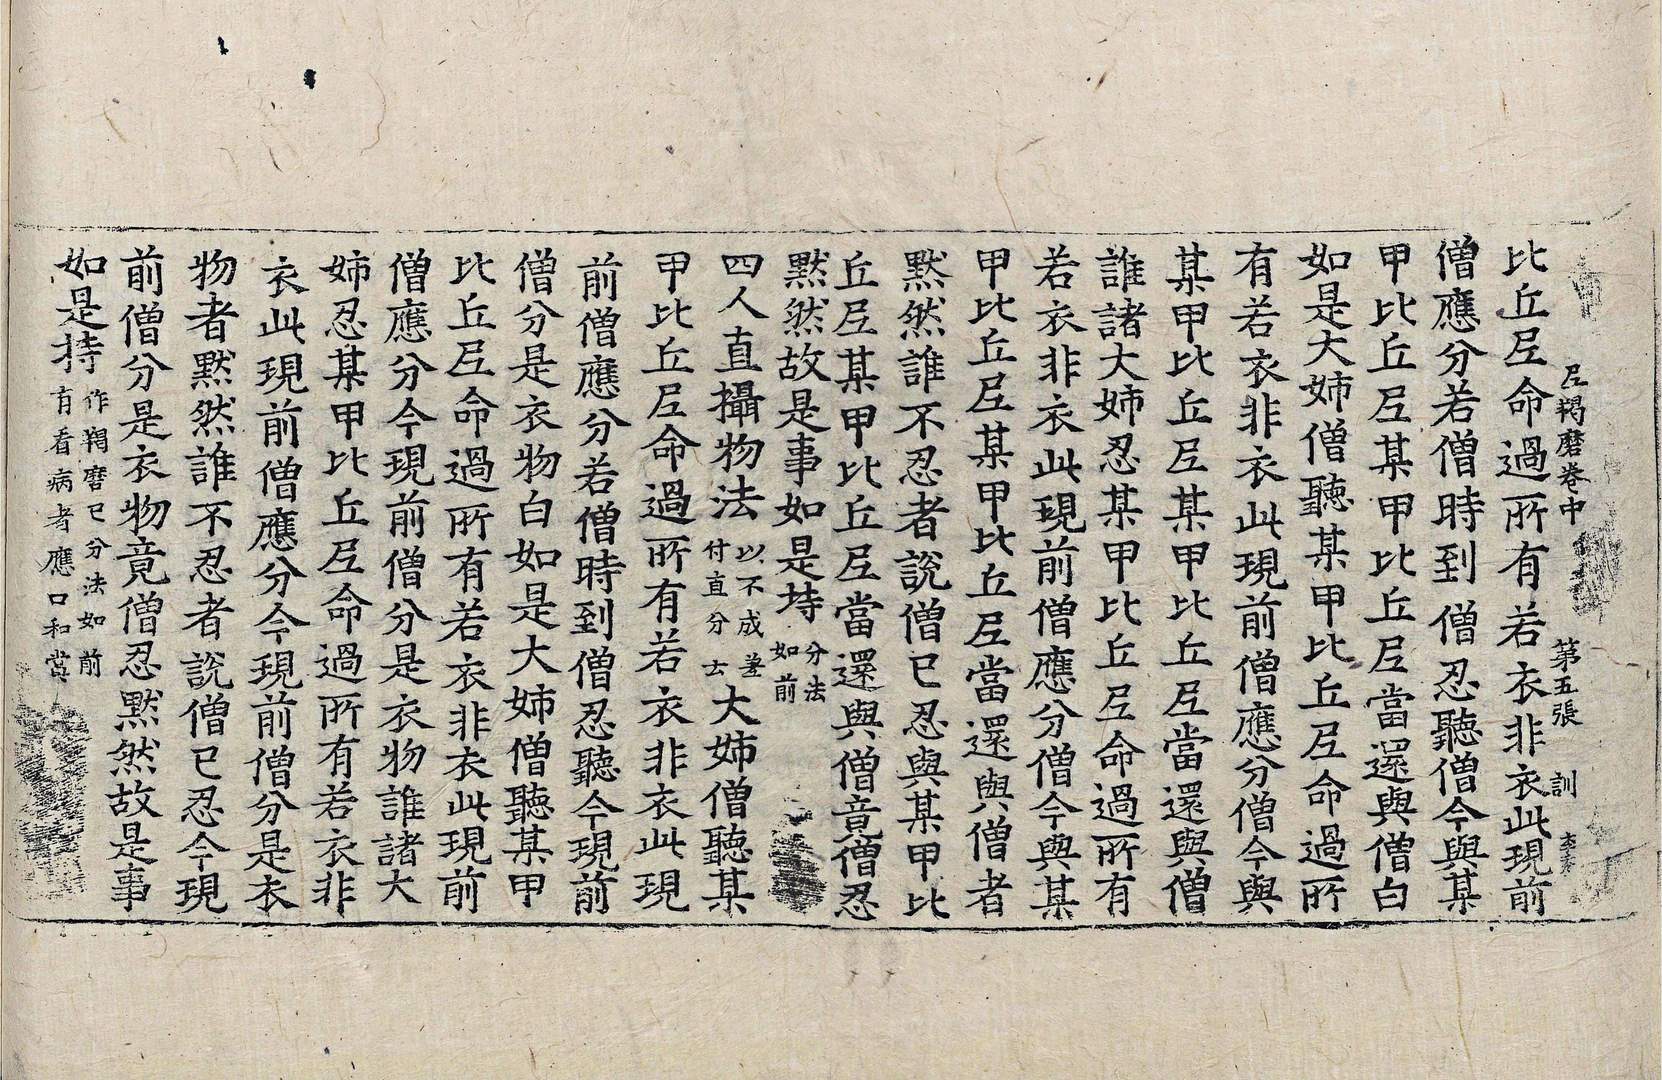 尼羯磨卷中 第五張 訓
比丘尼命過所有若衣非衣此現前
僧應分若僧時到僧忍聽僧今與某
甲比丘尼某甲比丘尼當還與僧白
如是大姉僧聽某甲比丘尼命過所
有若衣非衣此現前僧應分僧今與
某甲比丘尼某甲比丘尼當還與僧
誰諸大姉忍某甲比丘尼命過所有
若衣非衣此現前僧應分僧今與某
甲比丘尼某甲比丘尼當還與僧者
黙然誰不忍者說僧已忍與某甲比
丘尼某甲比丘尼當還與僧竟僧忍
黙然故是事如是持 分法
如前
四人直攝物法 以不成差
付直分云 大姉僧聽某
甲比丘尼命過所有若衣非衣此現
前僧應分若僧時到僧忍聽今現前
僧分是衣物白如是大姉僧聽某甲
比丘尼命過所有若衣非衣此現前
僧應分今現前僧分是衣物誰諸大
姉忍某甲比丘尼命過所有若衣非
衣此現前僧應分今現前僧分是衣
物者黙然誰不忍者說僧已忍今現
前僧分是衣物竟僧忍黙然故是事
如是持 作羯磨已分法如前
有看病者應口和賞